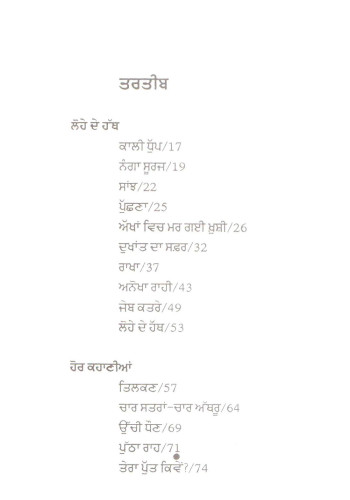 ਤਰਤੀਬ
ਲੋਹੇ ਦੇ ਹੱਥ
ਕਾਲੀ ਧੁੱਪ/17
ਨੰਗਾ ਸੂਰਜ/19
ਸਾਂਝ/22
ਪੁੱਛਣਾ/25
ਅੱਖਾਂ ਵਿਚ ਮਰ ਗਈ ਖ਼ੁਸ਼ੀ/26
ਦੁਖਾਂਤ ਦਾ ਸਫ਼ਰ/32
ਰਾਖਾ/37
ਅਨੋਖਾ ਰਾਹੀ/43
ਜੇਬ ਕਤਰੇ/49
ਲੋਹੇ ਦੇ ਹੱਥ/53
ਹੋਰ ਕਹਾਣੀਆਂ
ਤਿਲਕਣ/57
ਚਾਰ ਸਤਰਾਂ-ਚਾਰ ਅੱਥਰੂ/64
ਉੱਚੀ ਧੌਣ/69
ਪੁੱਠਾ ਰਾਹ/71
ਤੇਰਾ ਪੁੱਤ ਕਿਵੇਂ?/74